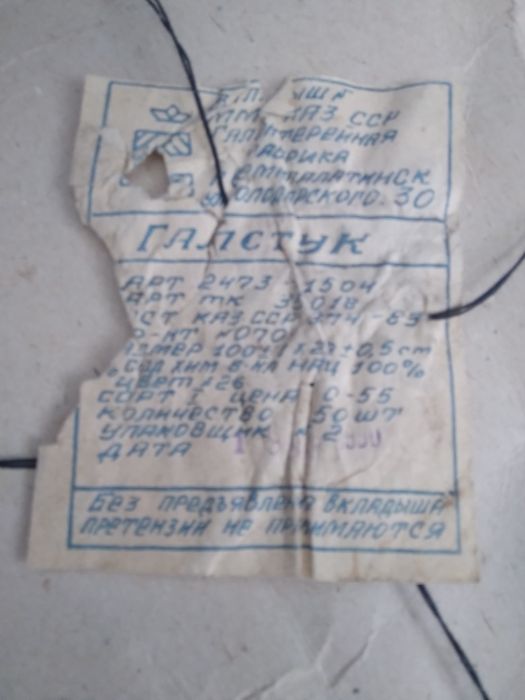 ММП КАЗ ССР
ГАЛАНТЕРЕЙНАЯ
ФАБРИКА
СЕМИПАЛАТИНСК
ВОЛОДАРСКОГО 30
ГАЛСТУК
АРТ 2473 - 1504
АРТ ТК 35018
КАЗ ССР 374 - 83
№070
РАЗМЕР 100±1 ± 0,5 см
ХИМ В-НА НАЦ 100%
ЦВЕТ 26
СОРТ I ЦЕНА 0-55
КОЛИЧЕСТВО 50 ШТ
УПАКОВЩИК № 2
ДАТА
БЕЗ ПРЕДЪЯВЛЕНА ВКЛАДЫША
ПРЕТЕНЗИИ НЕ ПРИНИМАЮТСЯ